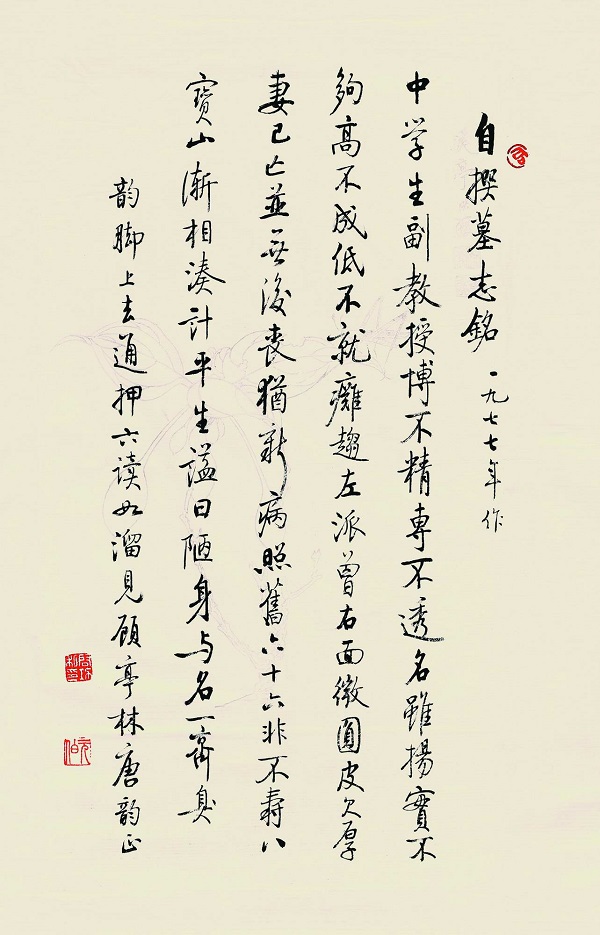 自撰墓志銘 一九七七年作
中学生副教授博不精專不透名雖揚實不
夠高不成低不就癱趨左派曾右面微圓皮欠厚
妻已亡並無後喪猶新病照舊六十六非不壽八
寶山漸相湊計平生謚曰陋身与名一齊臭
韵脚上去通押六读如溜見顾亭林唐韵正